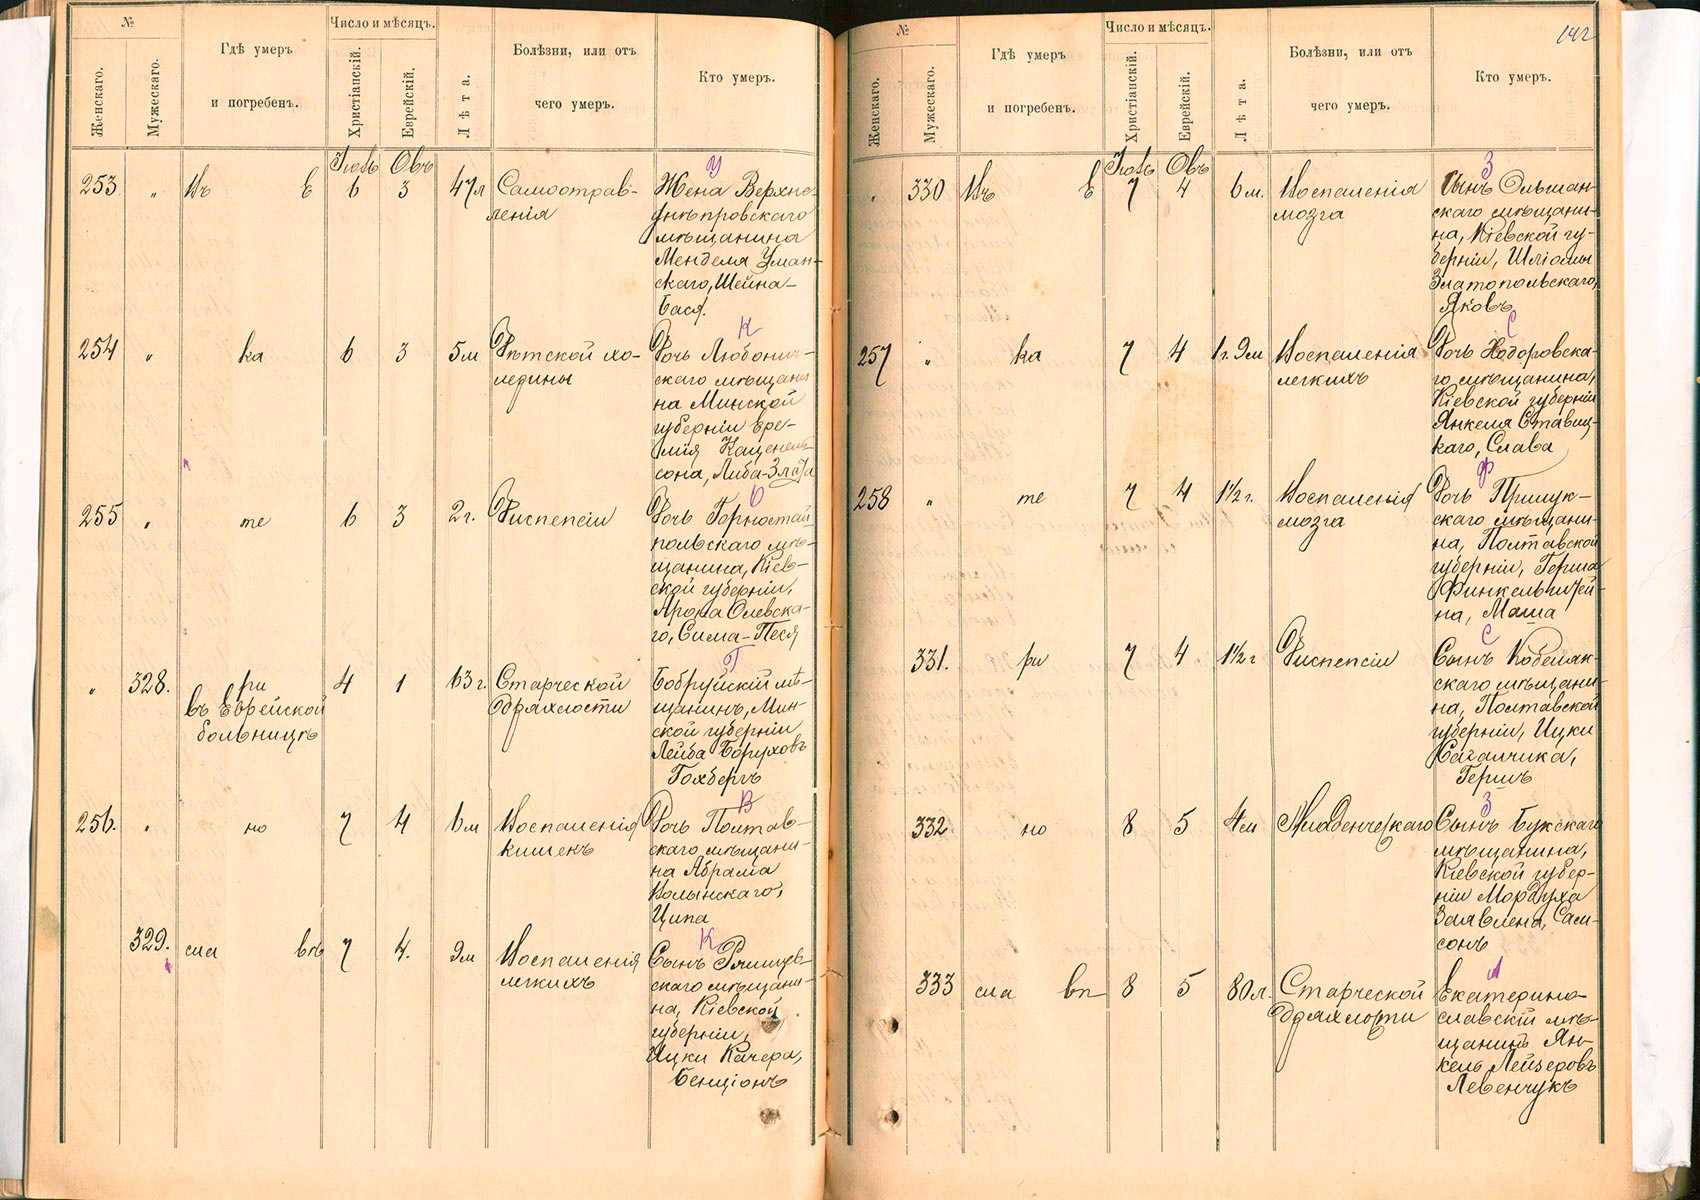 №
Число и мѣсяцъ.
Женскаго.
Мужескаго.
Гдѣ умеръ
и погребенъ.
Христіанскій.
Еврейскій.
Лѣта.
Болѣзни, или отъ
чего умеръ.
Кто умеръ.
253 „ Въ Е 6 3 47 л
Самоотрав-
ленія
У
Жена Верхне-
днѣпровскаго
мѣщанина
Менделя Уман-
скаго, Шейна-
Бася.
254 „ ка 6 3 5 м
Дѣтской хо-
лерины
К
Дочь Любонич-
скаго мѣщани
на Минской
губерніи Ере-
мія Каценель
сона, Либа-Злата
255 „ те 6 3 2 г.
Диспепсіи
О
Дочь Горностай
польскаго мѣ-
щанина, Кіев-
ской губерніи,
Арона Олевска-
го, Сима-Песя
„ 328. ри 4 1 63 г.
въ Еврейской
больницѣ
Старческой
дряхлости
Г
Бобруйскій мѣ-
щанинъ, Мин-
ской губерніи
Лейба Боруховъ
Гохбергъ
256. „ но 7 4 6 м
Воспаленія
кишекъ
В
Дочь Полтав-
скаго мѣщани-
на Абрама
Волынскаго,
Ципа
329. сла вѣ 7 4. 9 м
Воспаленія
легкихъ
К
Сынъ Ржищев-
скаго мѣщани-
на, Кіевской
губерніи,
Ицки Качера,
Бенціонъ
142
№
Число и мѣсяцъ.
Женскаго.
Мужескаго.
Гдѣ умеръ
и погребенъ.
Христіанскій.
Еврейскій.
Лѣта.
Болѣзни, или отъ
чего умеръ.
Кто умеръ.
„ 330 Въ Е 7 4 6 м.
Воспаленія
мозга
З
Сынъ Ольшан-
скаго мѣщани-
на, Кіевской гу-
берніи, Шліомы
Златопольскаго,
Яковъ
257 „ ка 7 4 1 г. 9 м
Воспаленія
легкихъ
С
Дочь Ходоровска-
го мѣщанина,
Кіевской губерніи
Янкеля Ставиц-
каго, Слава
258 „ те 7 4 1½ г.
Воспаленія
мозга
Ф
Дочь Прилук-
скаго мѣщани-
на, Полтавской
губерніи, Герша
Финкельштей-
на, Маша
331. ри 7 4 1½ г
Диспепсіи
С
Сынъ Кобеляк-
скаго мѣщани-
на, Полтавской
губерніи, Ицки
Сагалчика,
Гершъ
332 но 8 5 4 м
Младенческаго
З
Сынъ Букскаго
мѣщанина,
Кіевской губер-
ніи Мордуха
Заявлена, Сам-
сонъ
333 сла вѣ 8 5 80 л.
Старческой
дряхлости
Л
Екатерино-
славскій мѣ-
щанинъ Ян-
кель Лейзеровъ
Левенчукъ